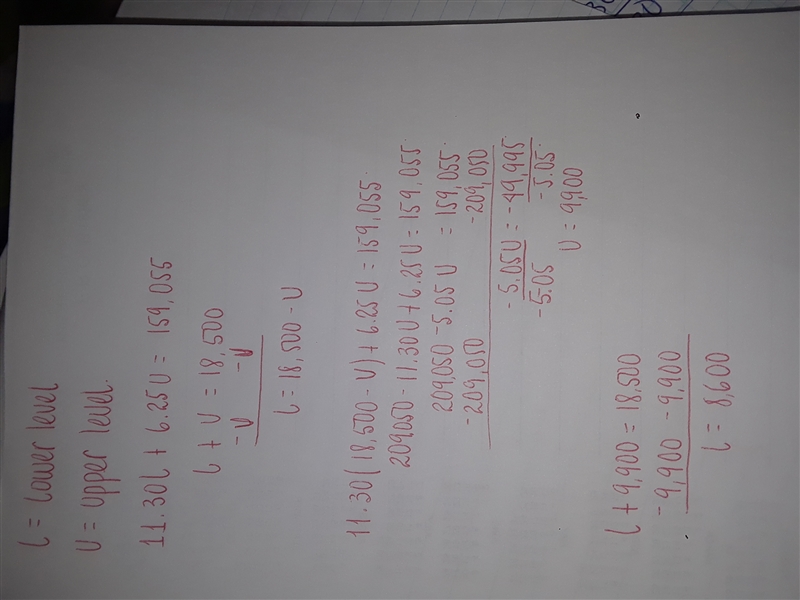 l = Lower level
U = Upper level.
11.30l + 6.25U = 159,055
l + U = 18,500
-U -U
l = 18,500 - U
11.30(18,500 - U) + 6.25U = 159,055.
209050 - 11.30U + 6.25U = 159,055
209,050 - 5.05U = 159,055.
-209,050 -209,050
-5.05U = -49,995
-5.05 -5.05.
U = 9,900
l + 9,900 = 18,500
-9,900 -9,900
l = 8,600